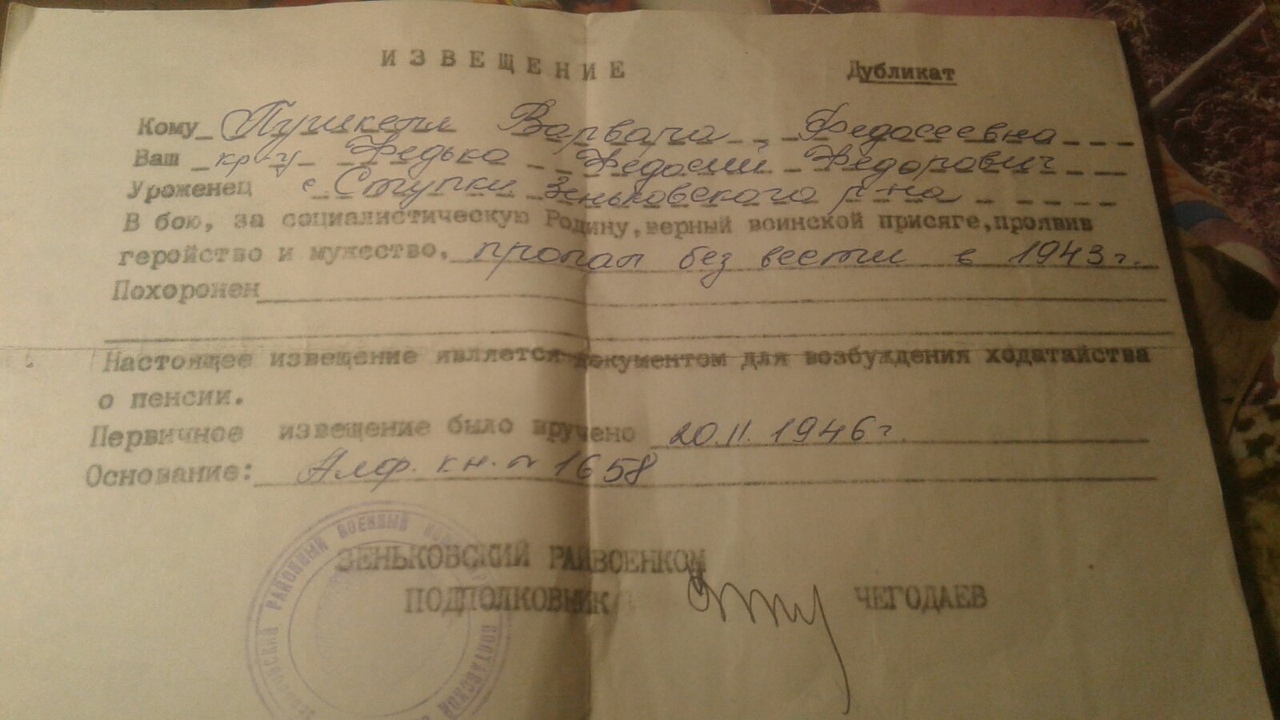 ИЗВЕЩЕНИЕ
Дубликат
Кому Варвара Федосеевна
Ваш кр-ц Федько Федосий Федорович
Уроженец с Ступки Зеньковского р-на
В бою, за социалистическую Родину, верный воинской присяге, проявив
геройство и мужество, пропал без вести в 1943 г.
Похоронен
Настоящее извещение является документом для возбуждения ходатайства
о пенсии.
Первичное извещение было вручено 20.11.1946 г.
Основание: Алф. кн. № 1658
ЗЕНЬКОВСКИЙ РАЙВОЕНКОМ
ПОДПОЛКОВНИК/ ЧЕГОДАЕВ
РАЙОННЫЙ ВОЕННЫЙ ПОЛТАВСКОЙ